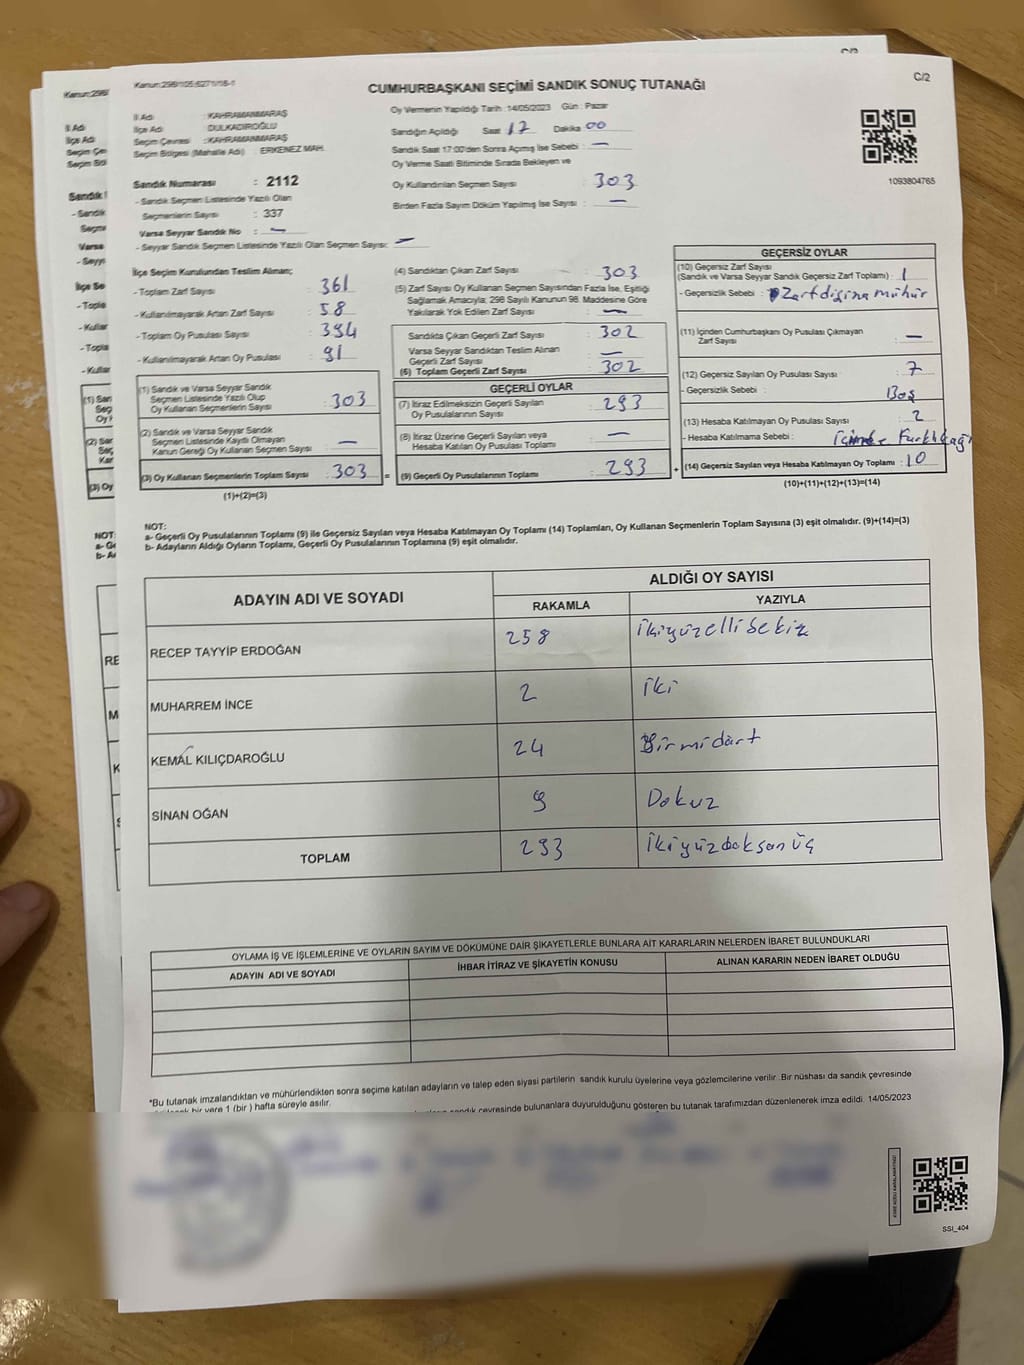 Kanun:298/105;6271/18-1
C/2
CUMHURBAŞKANI SEÇİMİ SANDIK SONUÇ TUTANAĞI
İl Adı : KAHRAMANMARAŞ
İlçe Adı : DULKADİROĞLU
Seçim Çevresi : KAHRAMANMARAŞ
Seçim Bölgesi (Mahalle Adı) : ERKENEZ MAH.
Sandık Numarası : 2112
- Sandık Seçmen Listesinde Yazılı Olan
Seçmenlerin Sayısı : 337
Varsa Seyyar Sandık No : —
- Seyyar Sandık Seçmen Listesinde Yazılı Olan Seçmen Sayısı: —
Oy Vermenin Yapıldığı Tarih :14/05/2023 Gün : Pazar
Sandığın Açıldığı Saat 17 Dakika 00
Sandık Saat 17:00'den Sonra Açımış İse Sebebi : —
Oy Verme Saati Bitiminde Sırada Bekleyen ve
Oy Kullandırılan Seçmen Sayısı : 303
Birden Fazla Sayım Döküm Yapılmış İse Sayısı : —
1093804765
İlçe Seçim Kurulundan Teslim Alınan;
- Toplam Zarf Sayısı : 361
- Kullanılmayarak Artan Zarf Sayısı : 58
- Toplam Oy Pusulası : 394
- Kullanılmayarak Artan Oy Pusulası : 91
(1) Sandık ve Varsa Seyyar Sandık
Seçmen Listesinde Yazılı Olup
Oy Kullanan Seçmenlerin Sayısı : 303
(2) Sandık ve Varsa Seyyar Sandık
Seçmen Listesinde Kayıtlı Olmayan
Kanun Gereği Oy Kullanan Seçmen Sayısı : —
(3) Oy Kullanan Seçmenlerin Toplam Sayısı : 303
(1)+(2)=(3)
(4) Sandıktan Çıkan Zarf Sayısı : 303
(5) Zarf Sayısı Oy Kullanan Seçmen Sayısından Fazla İse, Eşitliği
Sağlamak Amacıyla; 298 Sayılı Kanunun 98. Maddesine Göre
Yakılarak Yok Edilen Zarf Sayısı : —
Sandıkta Çıkan Geçerli Zarf Sayısı : 302
Varsa Seyyar Sandıktan Teslim Alınan
Geçerli Zarf Sayısı : —
(6) Toplam Geçerli Zarf Sayısı : 302
GEÇERLİ OYLAR
(7) İtiraz Edilmeksizin Geçerli Sayılan
Oy Pusulalarının Sayısı : 293
(8) İtiraz Üzerine Geçerli Sayılan veya
Hesaba Katılan Oy Pusulası Toplamı : —
= (9) Geçerli Oy Pusulalarının Toplamı : 293 +
GEÇERSİZ OYLAR
(10) Geçersiz Zarf Sayısı
(Sandık ve Varsa Seyyar Sandık Geçersiz Zarf Toplamı) : 1
- Geçersizlik Sebebi : Zarf dışına mühür
(11) İçinden Cumhurbaşkanı Oy Pusulası Çıkmayan
Zarf Sayısı : —
(12) Geçersiz Sayılan Oy Pusulası Sayısı : 7
- Geçersizlik Sebebi : Boş
(13) Hesaba Katılmayan Oy Pusulası Sayısı : 2
- Hesaba Katılmama Sebebi : içinde Farklı
(14) Geçersiz Sayılan veya Hesaba Katılmayan Oy Toplamı : 10
(10)+(11)+(12)+(13)=(14)
NOT:
a- Geçerli Oy Pusulalarının Toplamı (9) ile Geçersiz Sayılan veya Hesaba Katılmayan Oy Toplamı (14) Toplamları, Oy Kullanan Seçmenlerin Toplam Sayısına (3) eşit olmalıdır. (9)+(14)=(3)
b- Adayların Aldığı Oyların Toplamı, Geçerli Oy Pusulalarının Toplamına (9) eşit olmalıdır.
ADAYIN ADI VE SOYADI ALDIĞI OY SAYISI
RAKAMLA YAZIYLA
RECEP TAYYİP ERDOĞAN 258 ikiyüzellisekiz
MUHARREM İNCE 2 iki
KEMAL KILIÇDAROĞLU 24 Yirmidört
SİNAN OĞAN 9 Dokuz
TOPLAM 293 ikiyüzdoksanüç
OYLAMA İŞ VE İŞLEMLERİNE VE OYLARIN SAYIM VE DÖKÜMÜNE DAİR ŞİKAYETLERLE BUNLARA AİT KARARLARIN NELERDEN İBARET BULUNDUKLARI
ADAYIN ADI VE SOYADI İHBAR İTİRAZ VE ŞİKAYETİN KONUSU ALINAN KARARIN NEDEN İBARET OLDUĞU
*Bu tutanak imzalandıktan ve mühürlendikten sonra seçime katılan adayların ve talep eden siyasi partilerin sandık kurulu üyelerine veya gözlemcilerine verilir .Bir nüshası da sandık çevresinde
bir yere 1 (bir ) hafta süreyle asılır.
sandık çevresinde bulunanlara duyurulduğunu gösteren bu tutanak tarafımızdan düzenlenerek imza edildi. 14/05/2023
SSI_404